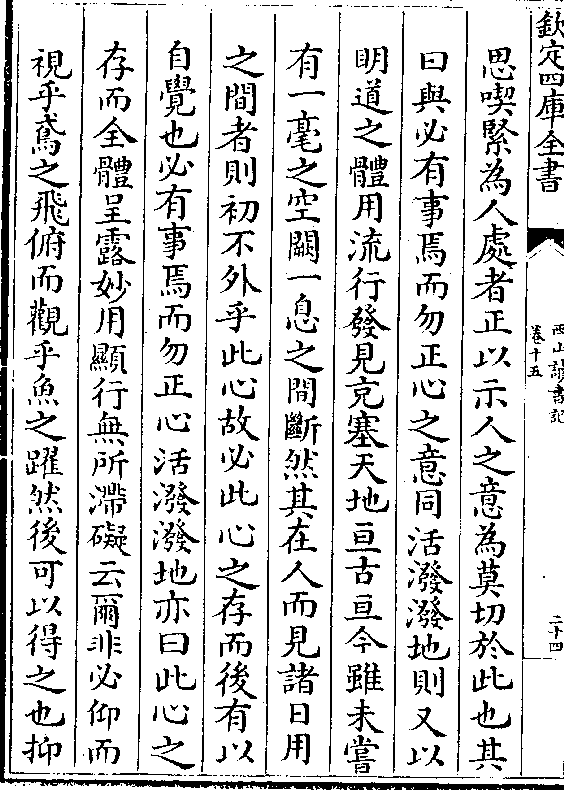 欽定四庫全書
西山讀書記
卷十五
二十四
思喫緊為人處者正以示人之意為莫切於此也其
曰與必有事焉而勿正心之意同活潑潑地則又以
明道之體用流行發見充塞天地亘古亘今雖未嘗
有一毫之空闕一息之間斷然其在人而見諸日用
之間者則初不外乎此心故必此心之存而後有以
自覺也必有事焉而勿正心活潑潑地亦曰此心之
存而全體呈露妙用顯行無所滯礙云爾非必仰而
視乎鳶之飛俯而觀乎魚之躍然後可以得之也抑